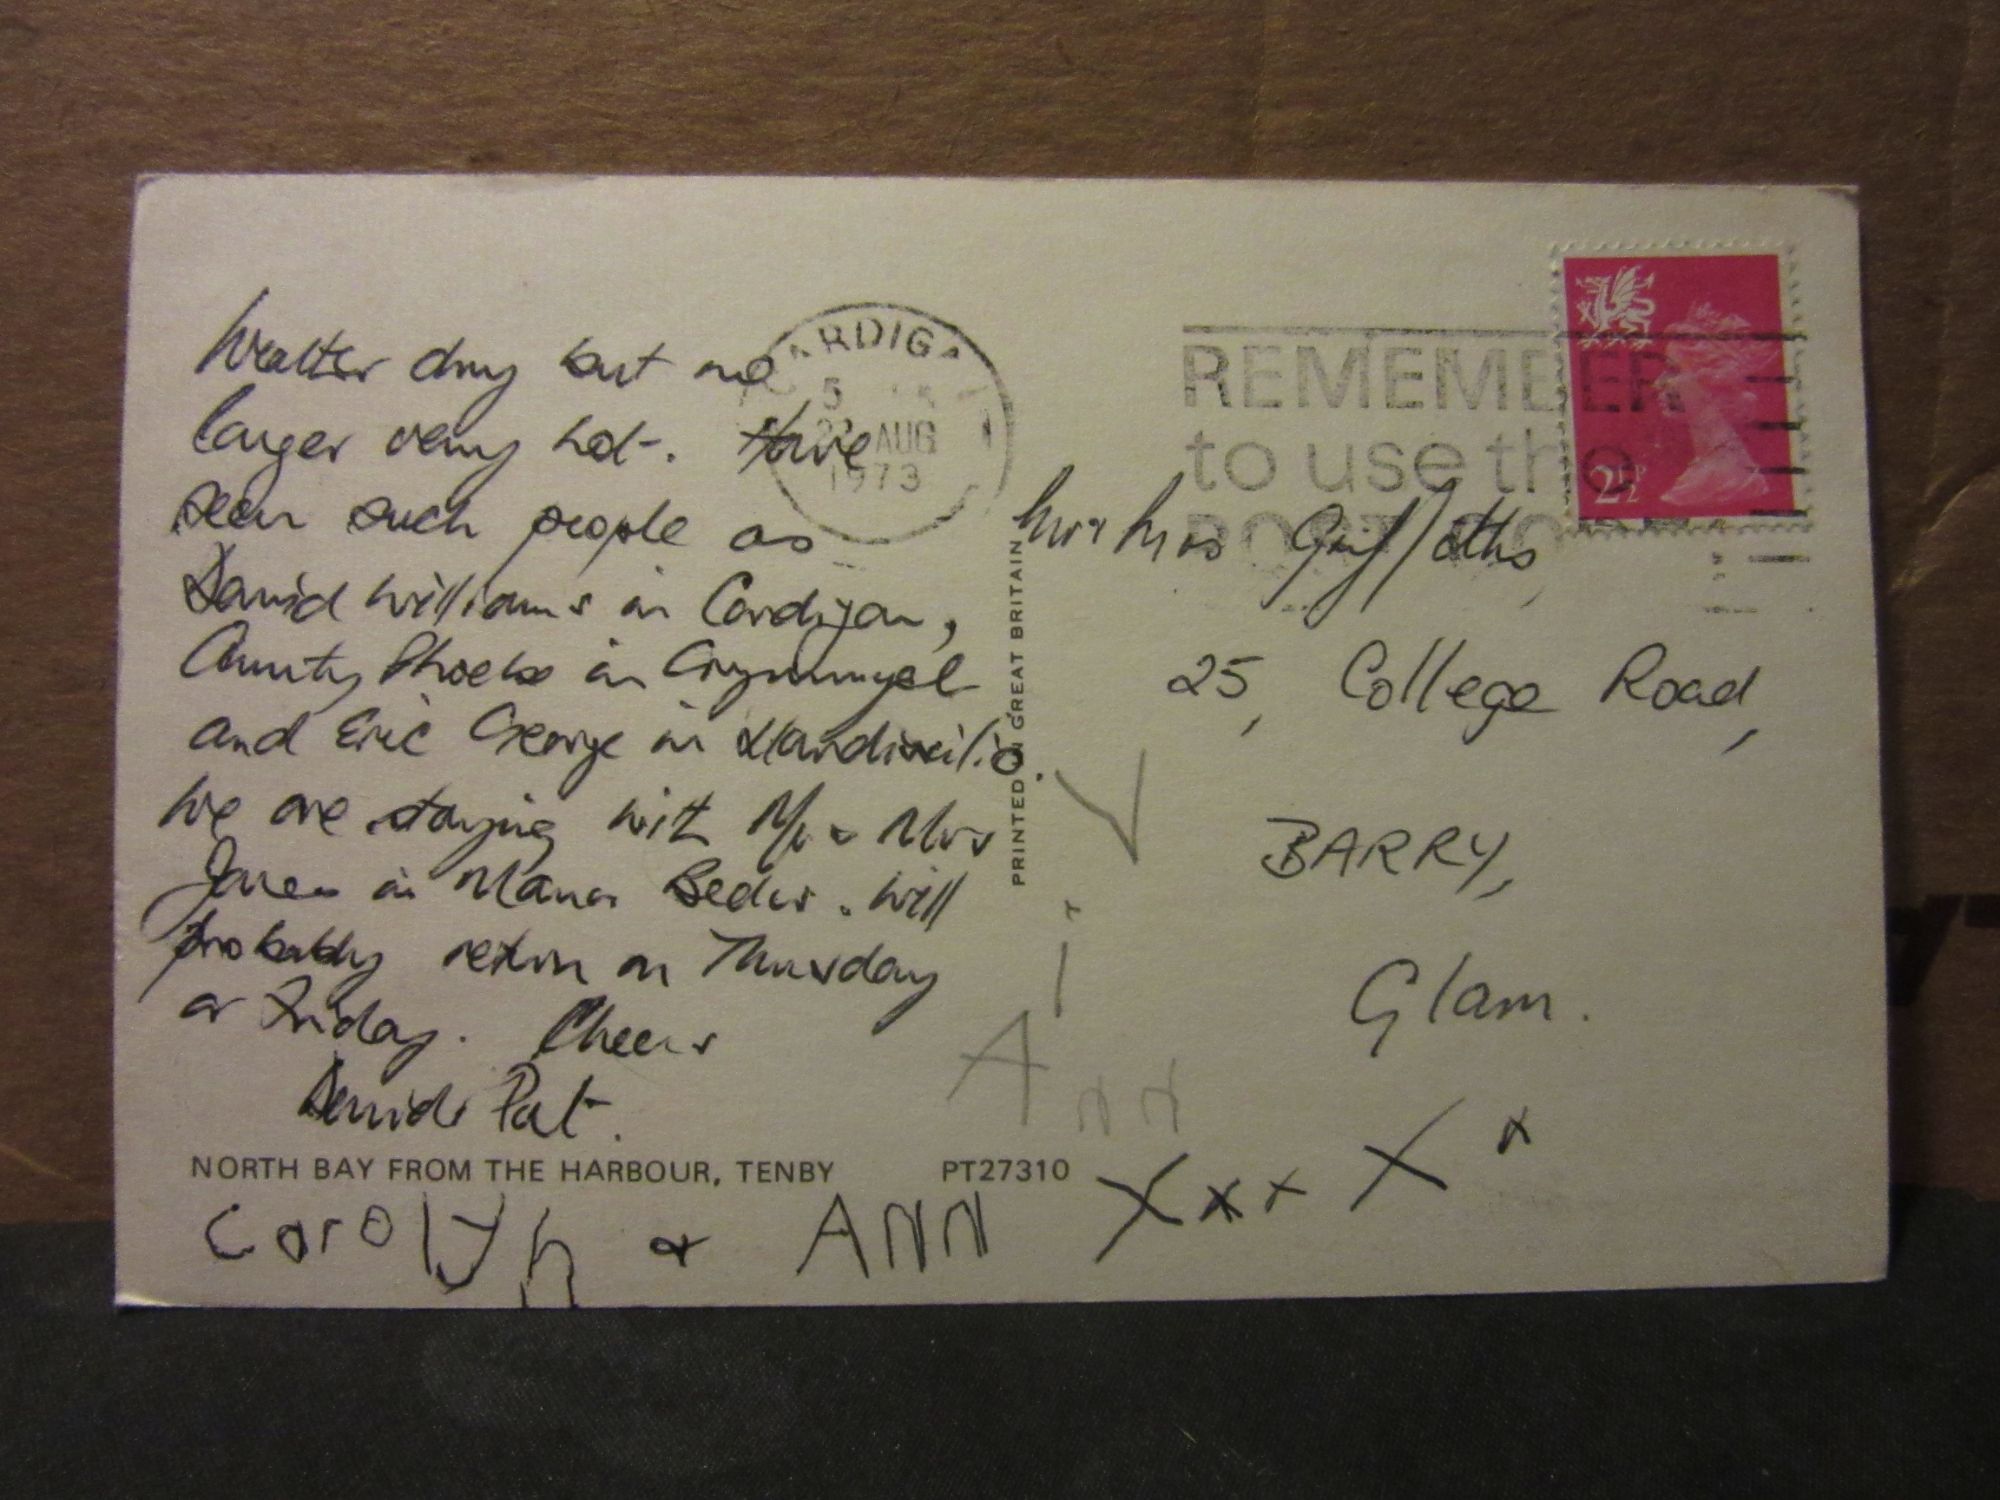 Weather dry but no
longer very hot. Have
seen such people as
David Williams in Cardigan,
Aunty Phoebe in Crymmych
and Eric George in Llandissilio.
We are staying with Mr & Mrs
Jones in Manor . Will
probably return on Thursday
or Friday. Cheers
David Pat.
NORTH BAY FROM THE HARBOUR, TENBY PT27310
Carolyn & ANN Xxx X x
PRINTED IN GREAT BRITAIN
CARDIGAN
5
AUG
1973
REMEMBER
to use the
2½P
Mr & Mrs Griffiths,
25, College Road,
BARRY,
Glam.
Ann